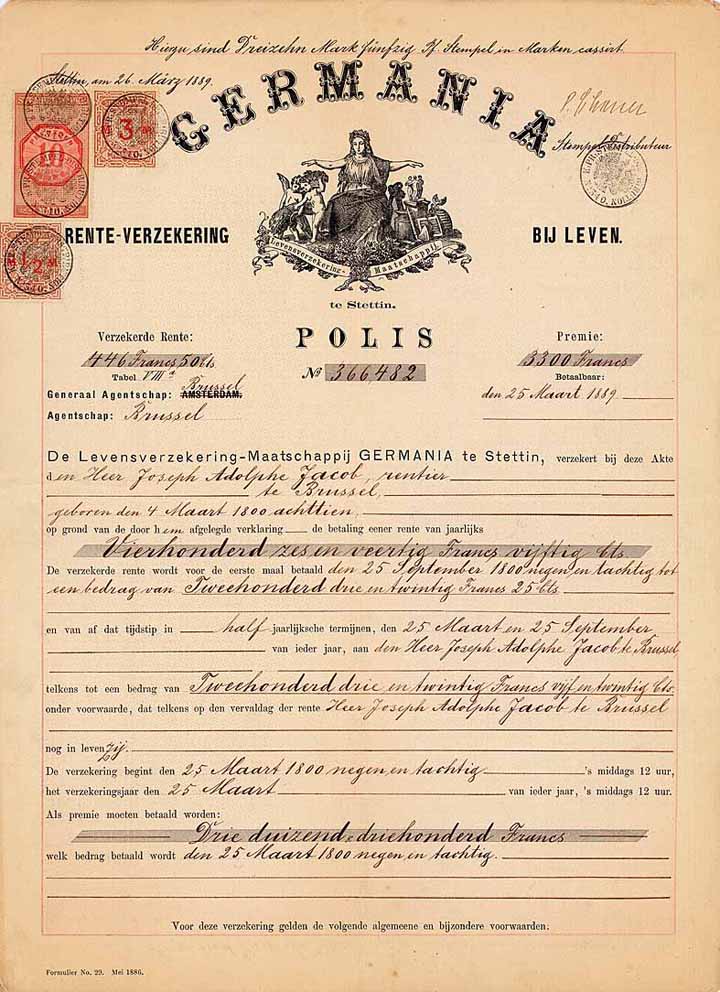 Hierzu sind Dreizehn Mark fünfzig Pf. Stempel in Marken cassirt.
Stettin, am 26. März 1889.
GERMANIA
Stempel Distributeur
10
3 M
1½ M
RENTE-VERZEKERING BIJ LEVEN.
Levensverzekering-Maatschappij
te Stettin.
POLIS
Verzekerde Rente: Premie:
446 Francs 50 Cts No 366,482 3300 Francs
Tabel VIIIa Betaalbaar:
Brussel
Generaal Agentschap: AMSTERDAM. den 25 Maart 1889.
Agentschap: Brussel
De Levensverzekering-Maatschappij GERMANIA te Stettin, verzekert bij deze Akte
den Heer Joseph Adolphe Jacob, rentier
te Brussel,
geboren den 4 Maart 1800 achttien,
op grond van de door hem afgelegde verklaring de betaling eener rente van jaarlijks
Vierhonderd zes en veertig Francs vijftig Cts.
De verzekerde rente wordt voor de eerste maal betaald den 25 September 1800 negen en tachtig tot
een bedrag van Tweehonderd drie en twintig Francs 25 Cts.
en van af dat tijdstip in half jaarlijksche termijnen, den 25 Maart en 25 September
van ieder jaar, aan den Heer Joseph Adolphe Jacob te Brussel
telkens tot een bedrag van Tweehonderd drie en twintig Francs vijf en twintig Cts.
onder voorwaarde, dat telkens op den vervaldag der rente Heer Joseph Adolphe Jacob te Brussel
nog in leven zij.
De verzekering begint den 25 Maart 1800 negen en tachtig 's middags 12 uur,
het verzekeringsjaar den 25 Maart van ieder jaar, 's middags 12 uur.
Als premie moeten betaald worden:
Drie duizend driehonderd Francs
welk bedrag betaald wordt den 25 Maart 1800 negen en tachtig.
Voor deze verzekering gelden de volgende algemeene en bijzondere voorwaarden.
Formulier No. 29. Mei 1886.